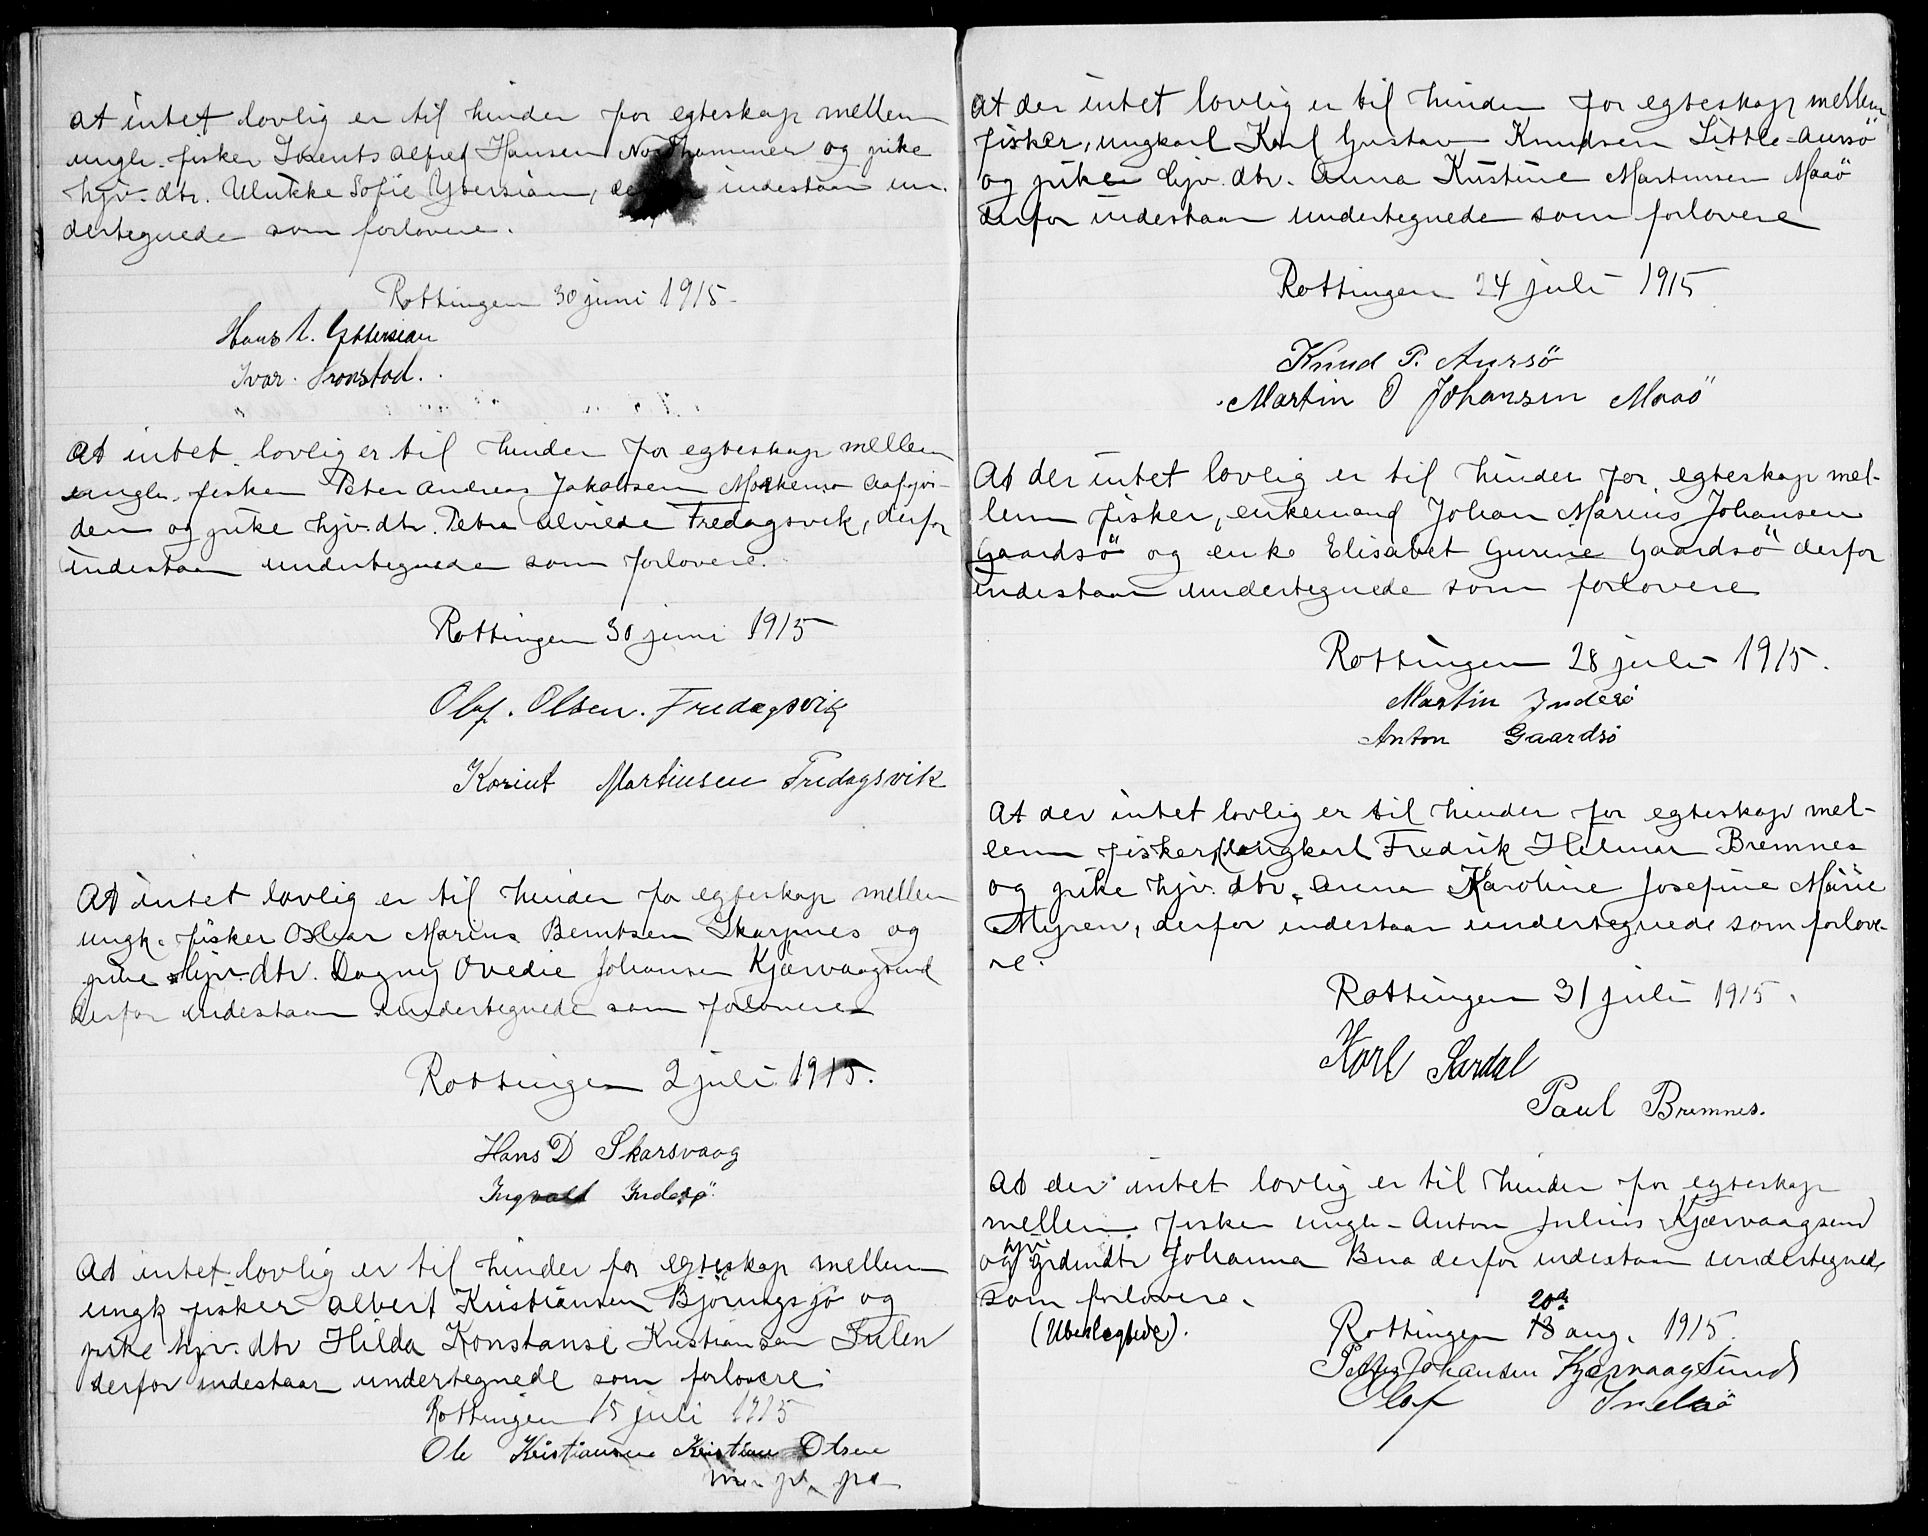 At intet lovlig er til hinder for egteskap mellem
ungk. fisker Lorents Alfred Hansen Nordhammer og pike
hjv. dtr. Ulrikke Sofie Ytersian, indestaar un-
dertegnede som forlovere.
Rottingen 30 juni 1915.
Hans A. Yttersian
Ivar Tronstad.
At intet lovlig er til hinder for egteskap mellem
ungk. fisker Peter Andreas Jakobsen
den og pike hjv. dtr. Petra Alvilde Fredagsvik, derfor
indestaar undertegnede som forlovere.
Rottingen 30 juni 1915
Olaf. Olsen. Fredagsvik
Korint Martinsen Fredagsvik
At intet lovlig er til hinder for egteskap mellem
ungk. fisker Oskar Marius Berntsen Skarpnes og
pike hjv. dtr. Dagny Ovedie Johansen Kjærvaagsund
derfor indestaar undertegnede som forlovere
Rottingen 2 juli 1915.
Hans D Skarsvaag
Ingvald Inderø
At intet lovlig er til hinder for egteskap mellem
ungk fisker Albert Kristiansen Björingsjö og
pike hjv. dtr Hilda Konstanse Kristiansen Sulen
derfor indestaar undertegnede som forlovere
Rottingen 15 juli 1915
Ole Kristiansen Kristian Olsen
At der intet lovlig er til hinder for egteskap mellem
fisker, ungkarl Karl Gustav Knudsen Little-Aursö
og pike hjv. dtr. Anna Kristine Martinsen Maaö
derfor indestaar undertegnede som forlovere
Rottingen 24 juli 1915
Knud P. Aursö
Martin O Johansen Maaö
At der intet lovlig er til hinder for egteskap mel-
lem fisker, enkemand Johan Marius Johansen
Gaardsö og enke Elisabet Gurine Gaardsö derfor
indestaar undertegnede som forlovere
Rottingen 28 juli 1915.
Martin Inderö
Anton Gaardsö
At der intet lovlig er til hinder for egteskap mel-
lem fisker, ungkarl Fredrik Hilmar Bremnes
og pike hjv. dtr. Anna Karoline Josefine Marie
Myren, derfor indestaar undertegnede som forlove-
re.
Rottingen 31 juli 1915.
Karl Sardal
Paul Bremnes.
At der intet lovlig er til hinder for egteskap
mellem fisker ungk. Anton Julius Kjærvaagsund
og hjv. grdmdtr Johanna Bua derfor indestaar undertegnede
som forlovere.
(Ubeslegtede).
20de
Rottingen 18 aug. 1915.
Peder Johansen Kjærvaagsund
Olaf Inderö